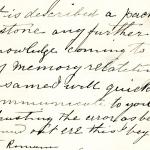 t is described a pack
stone any further
nowledge coming to
of memory relative
same I will quick
ommunicate to you
usting the error, as be
ere this I beg
Romann